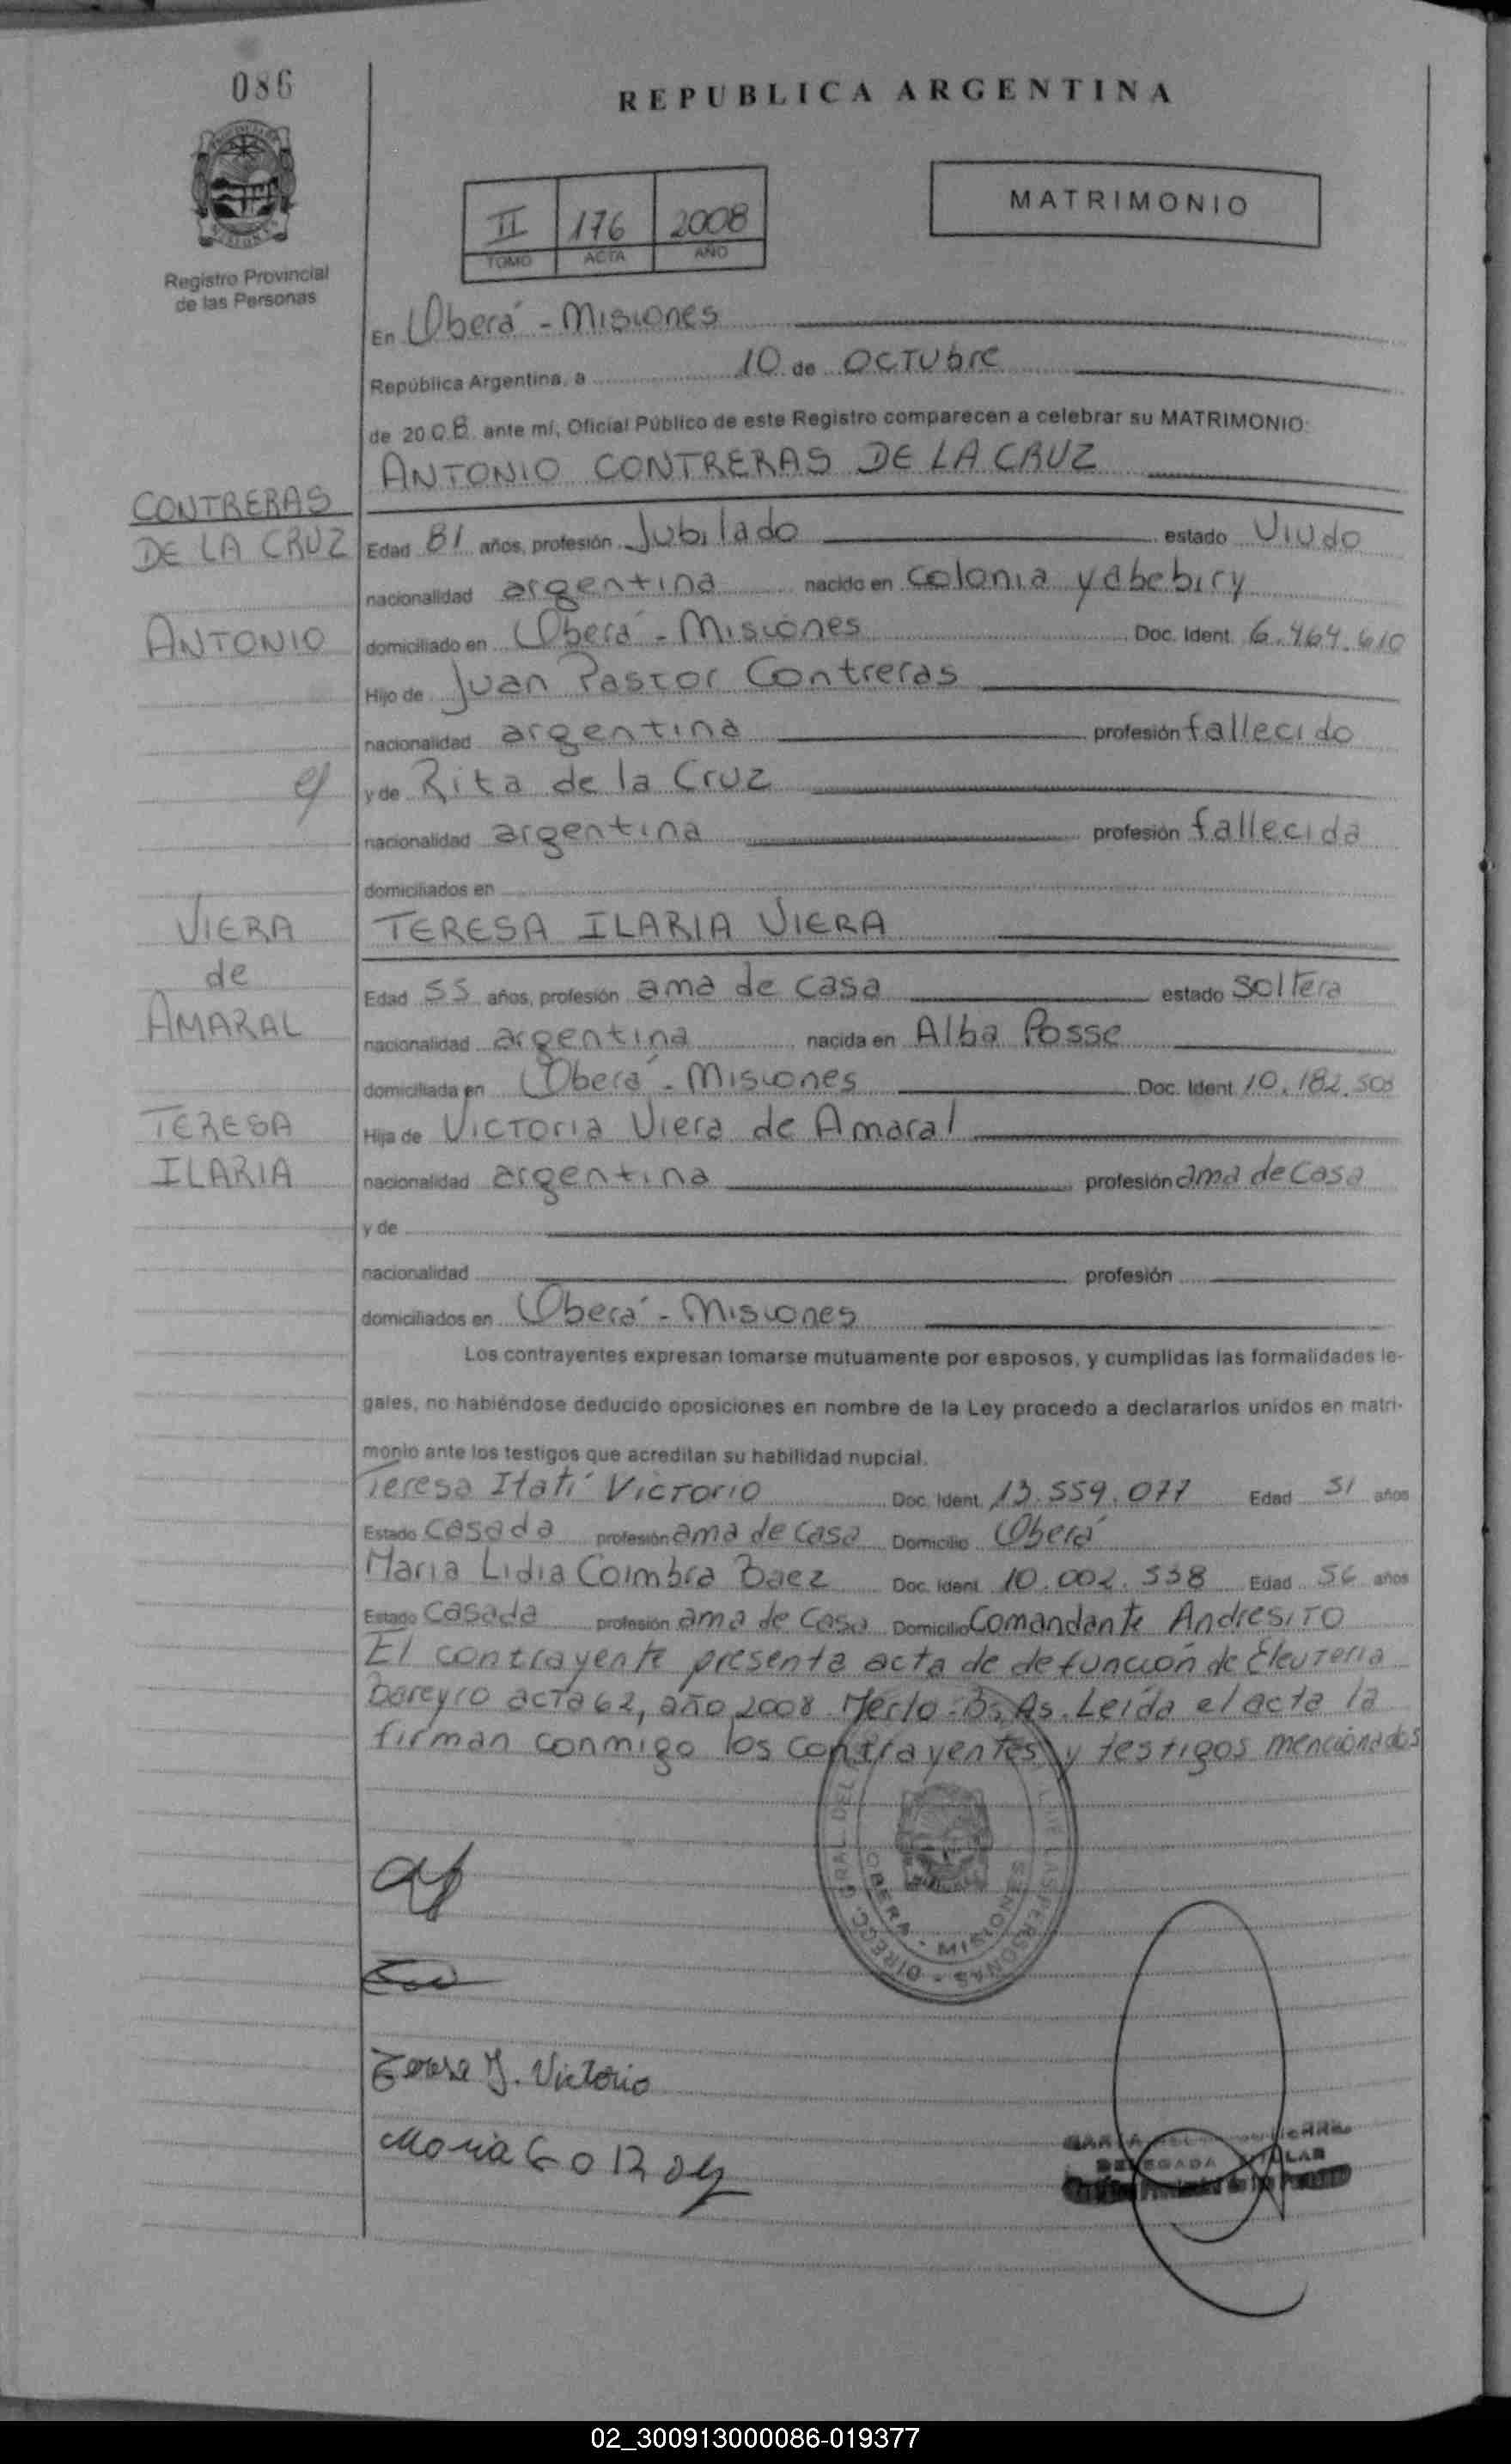 086
REPUBLICA ARGENTINA
II 176 2008
TOMO ACTA AÑO
MATRIMONIO
Registro Provincial
de las Personas
En Oberá - Misiones
República Argentina, a 10 de OCTUbre
de 2008 ante mí, Oficial Público de este Registro comparecen a celebrar su MATRIMONIO:
ANTONIO CONTRERAS DE LA CRUZ
CONTRERAS
DE LA CRUZ
Edad 81 años, profesión Jubilado estado Viudo
nacionalidad argentina nacido en Colonia yabebiry
ANTONIO
domiciliado en Oberá - Misiones Doc. Ident. 6.464.610
Hijo de Juan Pastor Contreras
nacionalidad argentina profesión fallecido
y de Rita de la Cruz
nacionalidad argentina profesión fallecida
domiciliados en
VIERA
de
AMARAL
TERESA ILARIA VIERA
Edad 55 años, profesión ama de casa estado soltera
nacionalidad argentina nacida en Alba Posse
domiciliada en Oberá - Misiones Doc. Ident. 10.182.508
TERESA
ILARIA
Hija de Victoria Viera de Amaral
nacionalidad argentina profesión ama de casa
y de
nacionalidad profesión
domiciliados en Oberá - Misiones
Los contrayentes expresan tomarse mutuamente por esposos, y cumplidas las formalidades le-
gales, no habiéndose deducido oposiciones en nombre de la Ley procedo a declararlos unidos en matri-
monio ante los testigos que acreditan su habilidad nupcial.
Teresa Itatí Victorio Doc. Ident. 13.559.077 Edad 51 años
Estado Casada profesión ama de casa Domicilio Oberá
Maria Lidia Coimbra Baez Doc. Ident. 10.002.538 Edad 56 años
Estado Casada profesión ama de casa Domicilio Comandante Andresito
El contrayente presenta acta de defunción de Eleuteria
Bareyro acta 62, año 2008. Merlo - Bs. As. Leída el acta la
firman conmigo los contrayentes y testigos mencionados
OBERA - MISIONES
Teresa I. Victorio
Maria
DELEGADA TITULAR
02_300913000086-019377